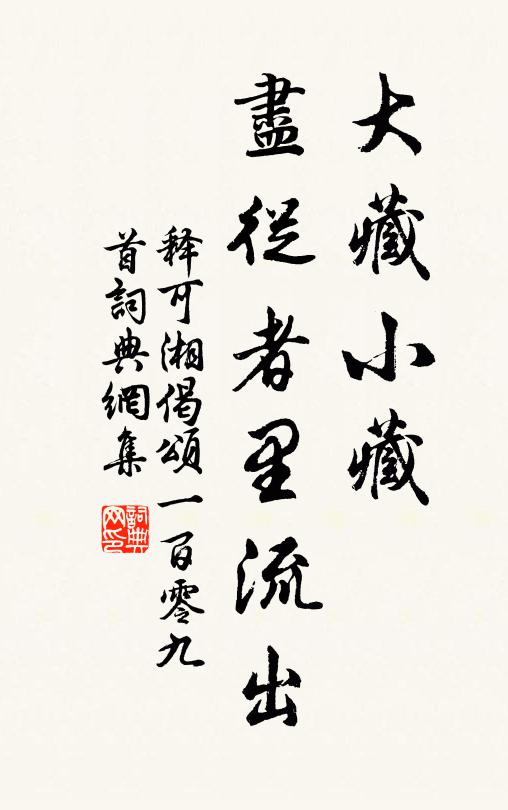 大藏小藏
盡從者里流出
释可湘偈頌一百零九
首詞典網集
詞典
网印